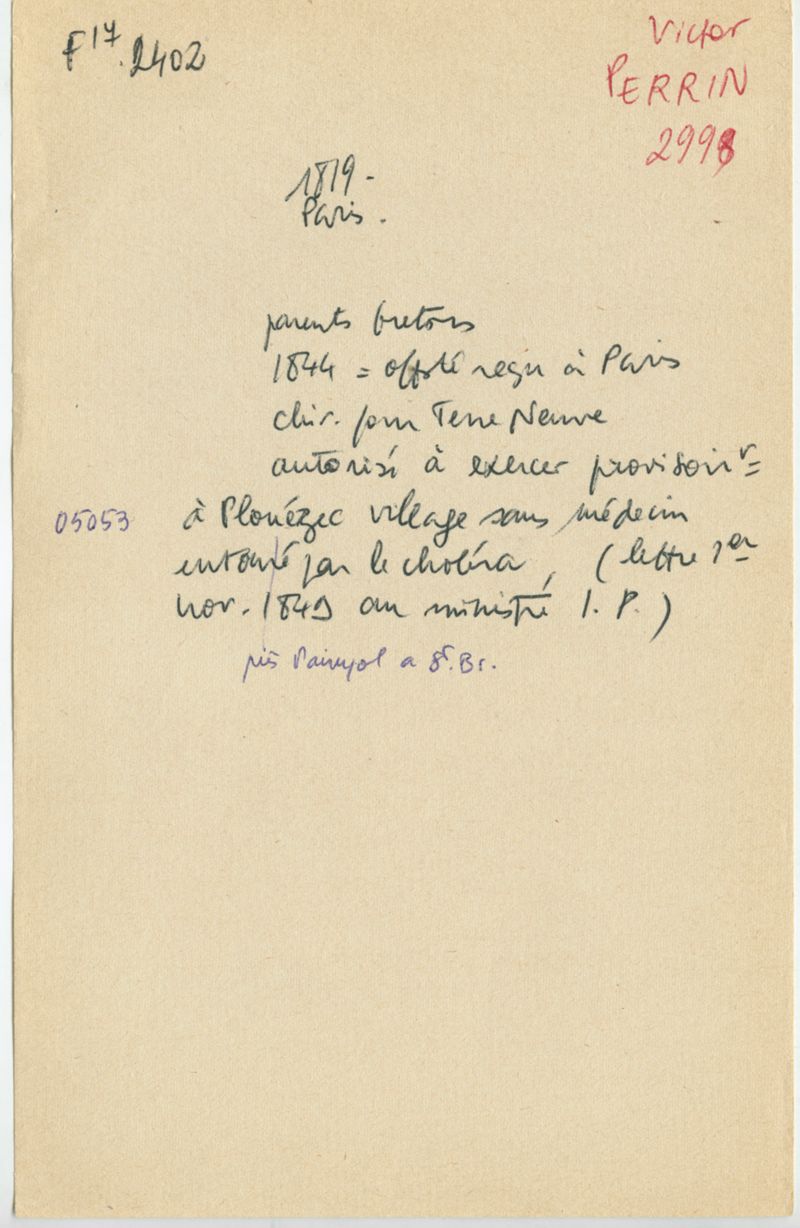 F17.2402
Victor
PERRIN
2998
1819 -
Paris.
parents bretons
1844 = offté reçu à Paris
chir. pour Terre Neuve
autorisé à exercer provisoirt=
05053 à Plouézec village sans médecin
entouré par le choléra, (lettre 1er
nov. 1849 au ministre I. P.)
près Paimpol a St. Br.